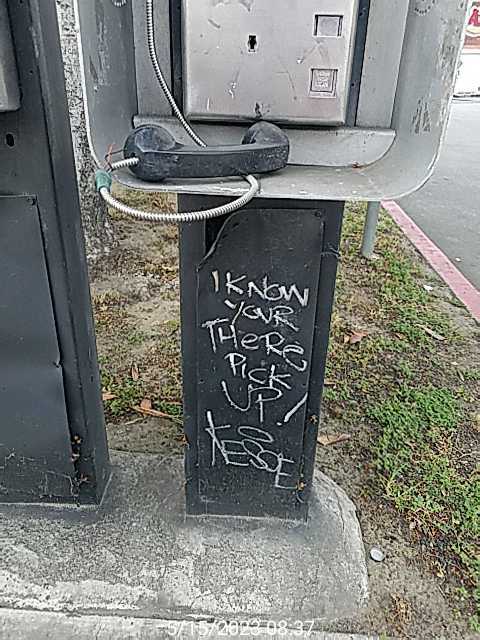 I KNOW
YOUR
THERE
PICK
UP!
5/15/2023 08:37